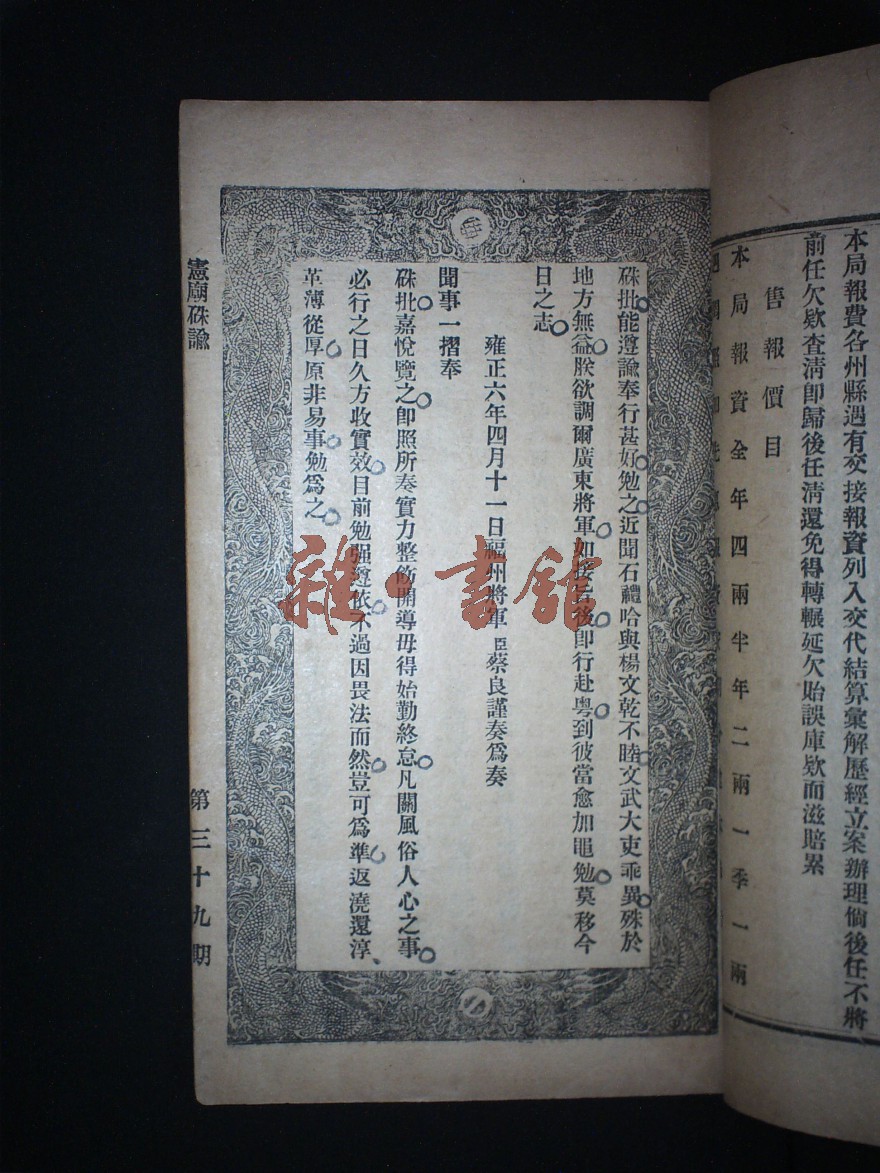 本局報費各州縣遇有交接報資列入交代結算彙解歷經立案辦理倘後任不將
前任欠欵查清卽歸後任淸還免得轉輾延欠貽誤庫欵而滋賠累
售報價目
本局報資全年四兩半年二兩一季一兩
硃批能遵諭奉行甚好勉之近聞石禮哈與楊文乾不睦文武大吏乖異殊於
地方無益朕欲調爾廣東將軍如接旨後卽行赴粵到彼當愈加黽勉莫移今
日之志
雍正六年四月十一日福州將軍臣蔡良謹奏爲奏
聞事一摺奉
硃批嘉悅覽之卽照所奏實力整飭開導毋得始勤終怠凡關風俗人心之事
必行之日久方收實效目前勉强遵依不過因畏法而然豈可爲準返澆還淳、
革薄從厚原非易事勉爲之
憲廟硃諭
第三十九期
雜·書館